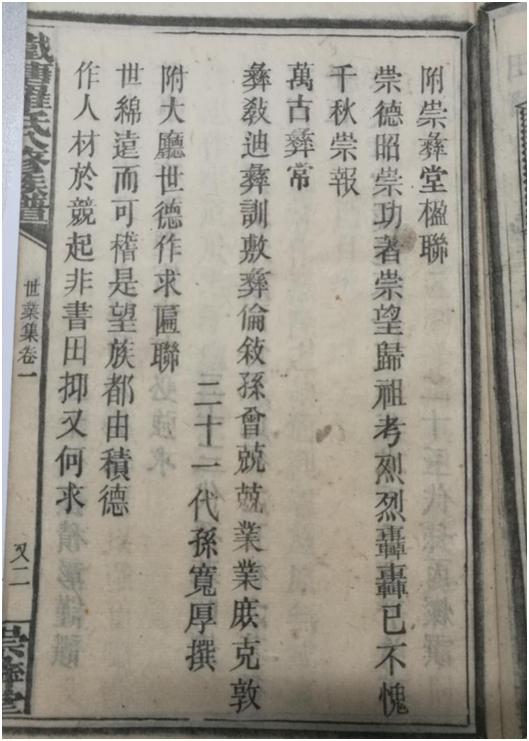 附崇彝堂楹聯
崇德昭崇功著崇望歸祖考烈烈轟轟已不愧
千秋崇報
萬古彝常
彝敎迪彝訓敷彝倫敘孫曾兢兢業業庶克敦
二十一代孫寬厚撰
附大廳世德作求匾聯
世綿遠而可稽是望族都由積德
作人材於競起非書田抑又何求
羅氏八修族譜
世業集卷一
又二
崇彝堂